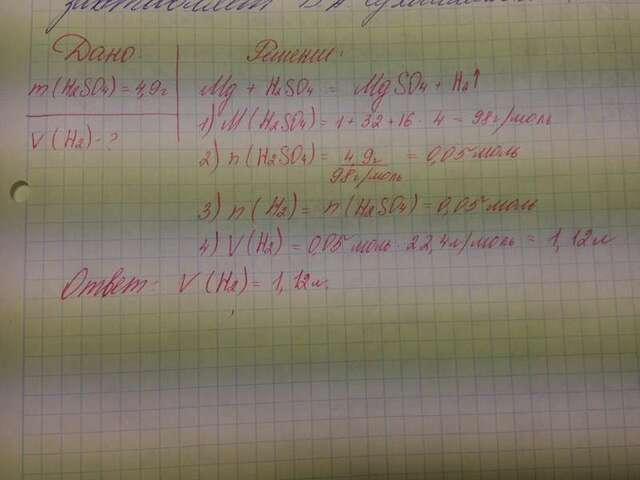 Дано:
Решение:
m(H₂SO₄)=4,9г
V(H₂)-?
Mg + H₂SO₄ = MgSO₄ + H₂↑
1) M(H₂SO₄)=1+32+16·4=98г/моль
2) n(H₂SO₄)= 4,9г / 98г/моль = 0,05моль
3) n(H₂)= n(H₂SO₄)=0,05моль
4) V(H₂)=0,05моль·22,4л/моль = 1,12л
Ответ: V(H₂)=1,12л.